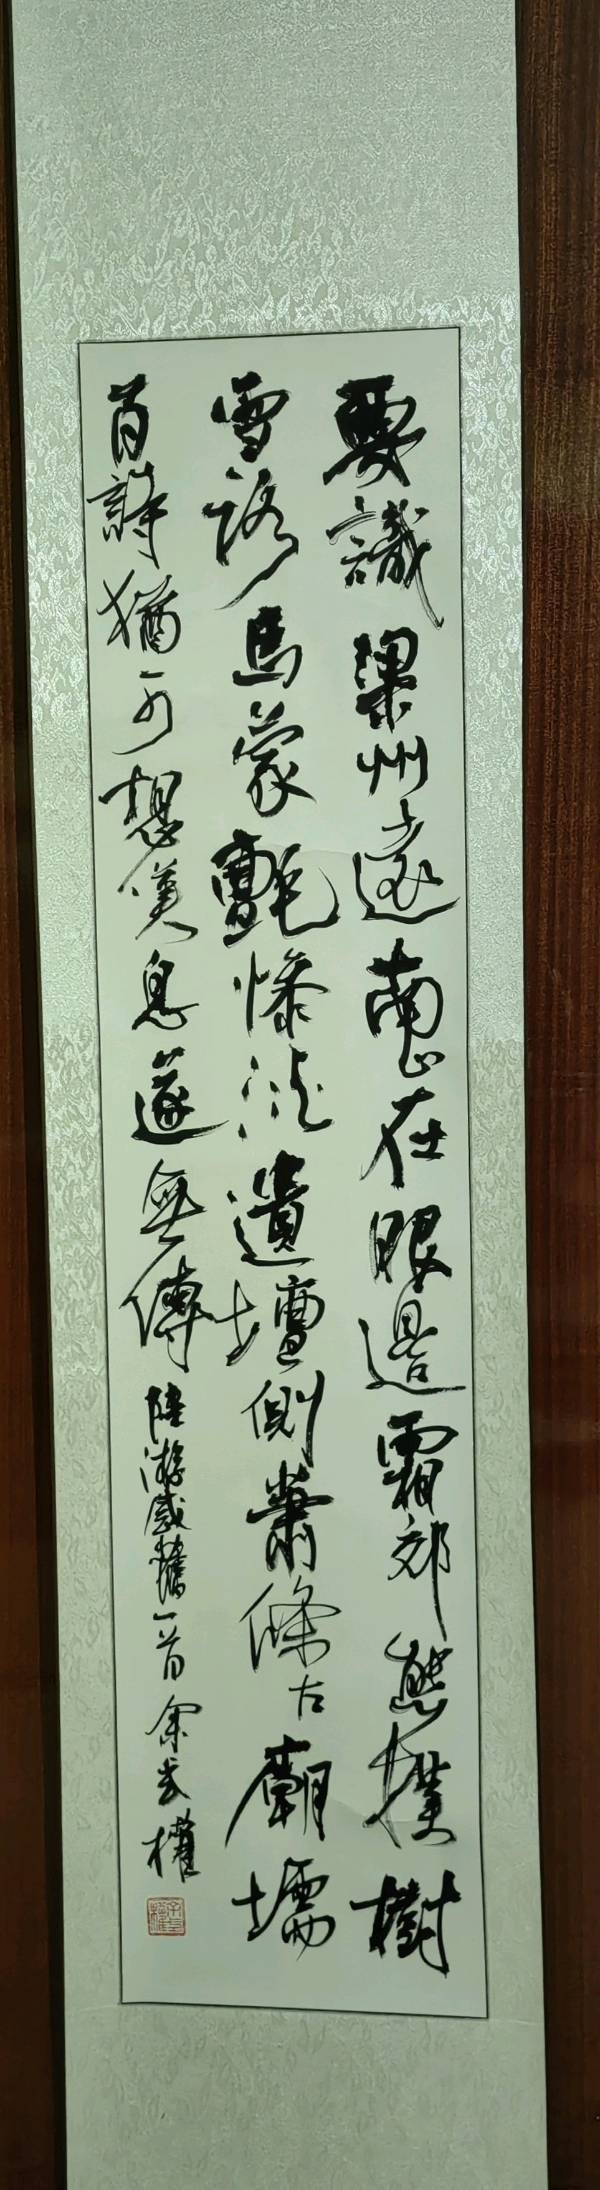 要識梁州遠南山在眼邊霜郊熊撲樹
雪路馬蒙氈慘淡遺壇側蕭條古廟壖
百詩猶可想嘆息遂無傳
陸游感舊一首余玄權